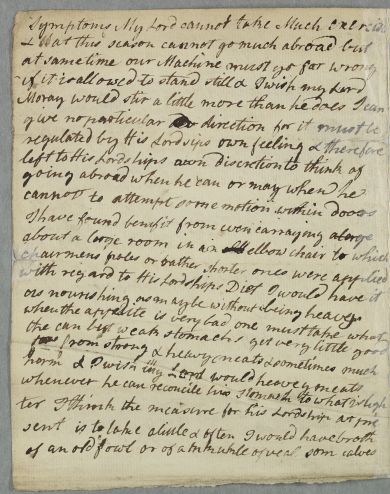 Symptoms My Lord cannot take Much Exercise
& What this season cannot go much abroad but
at same time our Machine must go far wrong
if it is allowed to stand still & I wish my Lord
Moray would stir a little more than he does I can
give no particular direction for it must be
regulated by His Lordships own feeling & therefore
left to His Lordships own Discretion to think of
going abroad when he can or may when he
cannot to attempt some motion within doors
I have found benefit from even carrageing alonge
about a large room in an elbow chair to which
chairmens poles or rather shorter ones were applied
with regard to His Lordships Diet I would have it
as nourishing as may be without being heavy
when the appetite is very bad one must take what
the can but weak stomachs get very little good
from strong & heavy meats & sometimes much
harm & I wish my Lord would heavey meats
whenever he can reconcile his stomach to what is ligh
ter I think the measure for his Lordship at pre
sent is to take a little & often I would have broth
of an old fowl or of a knuckle of veal som calves